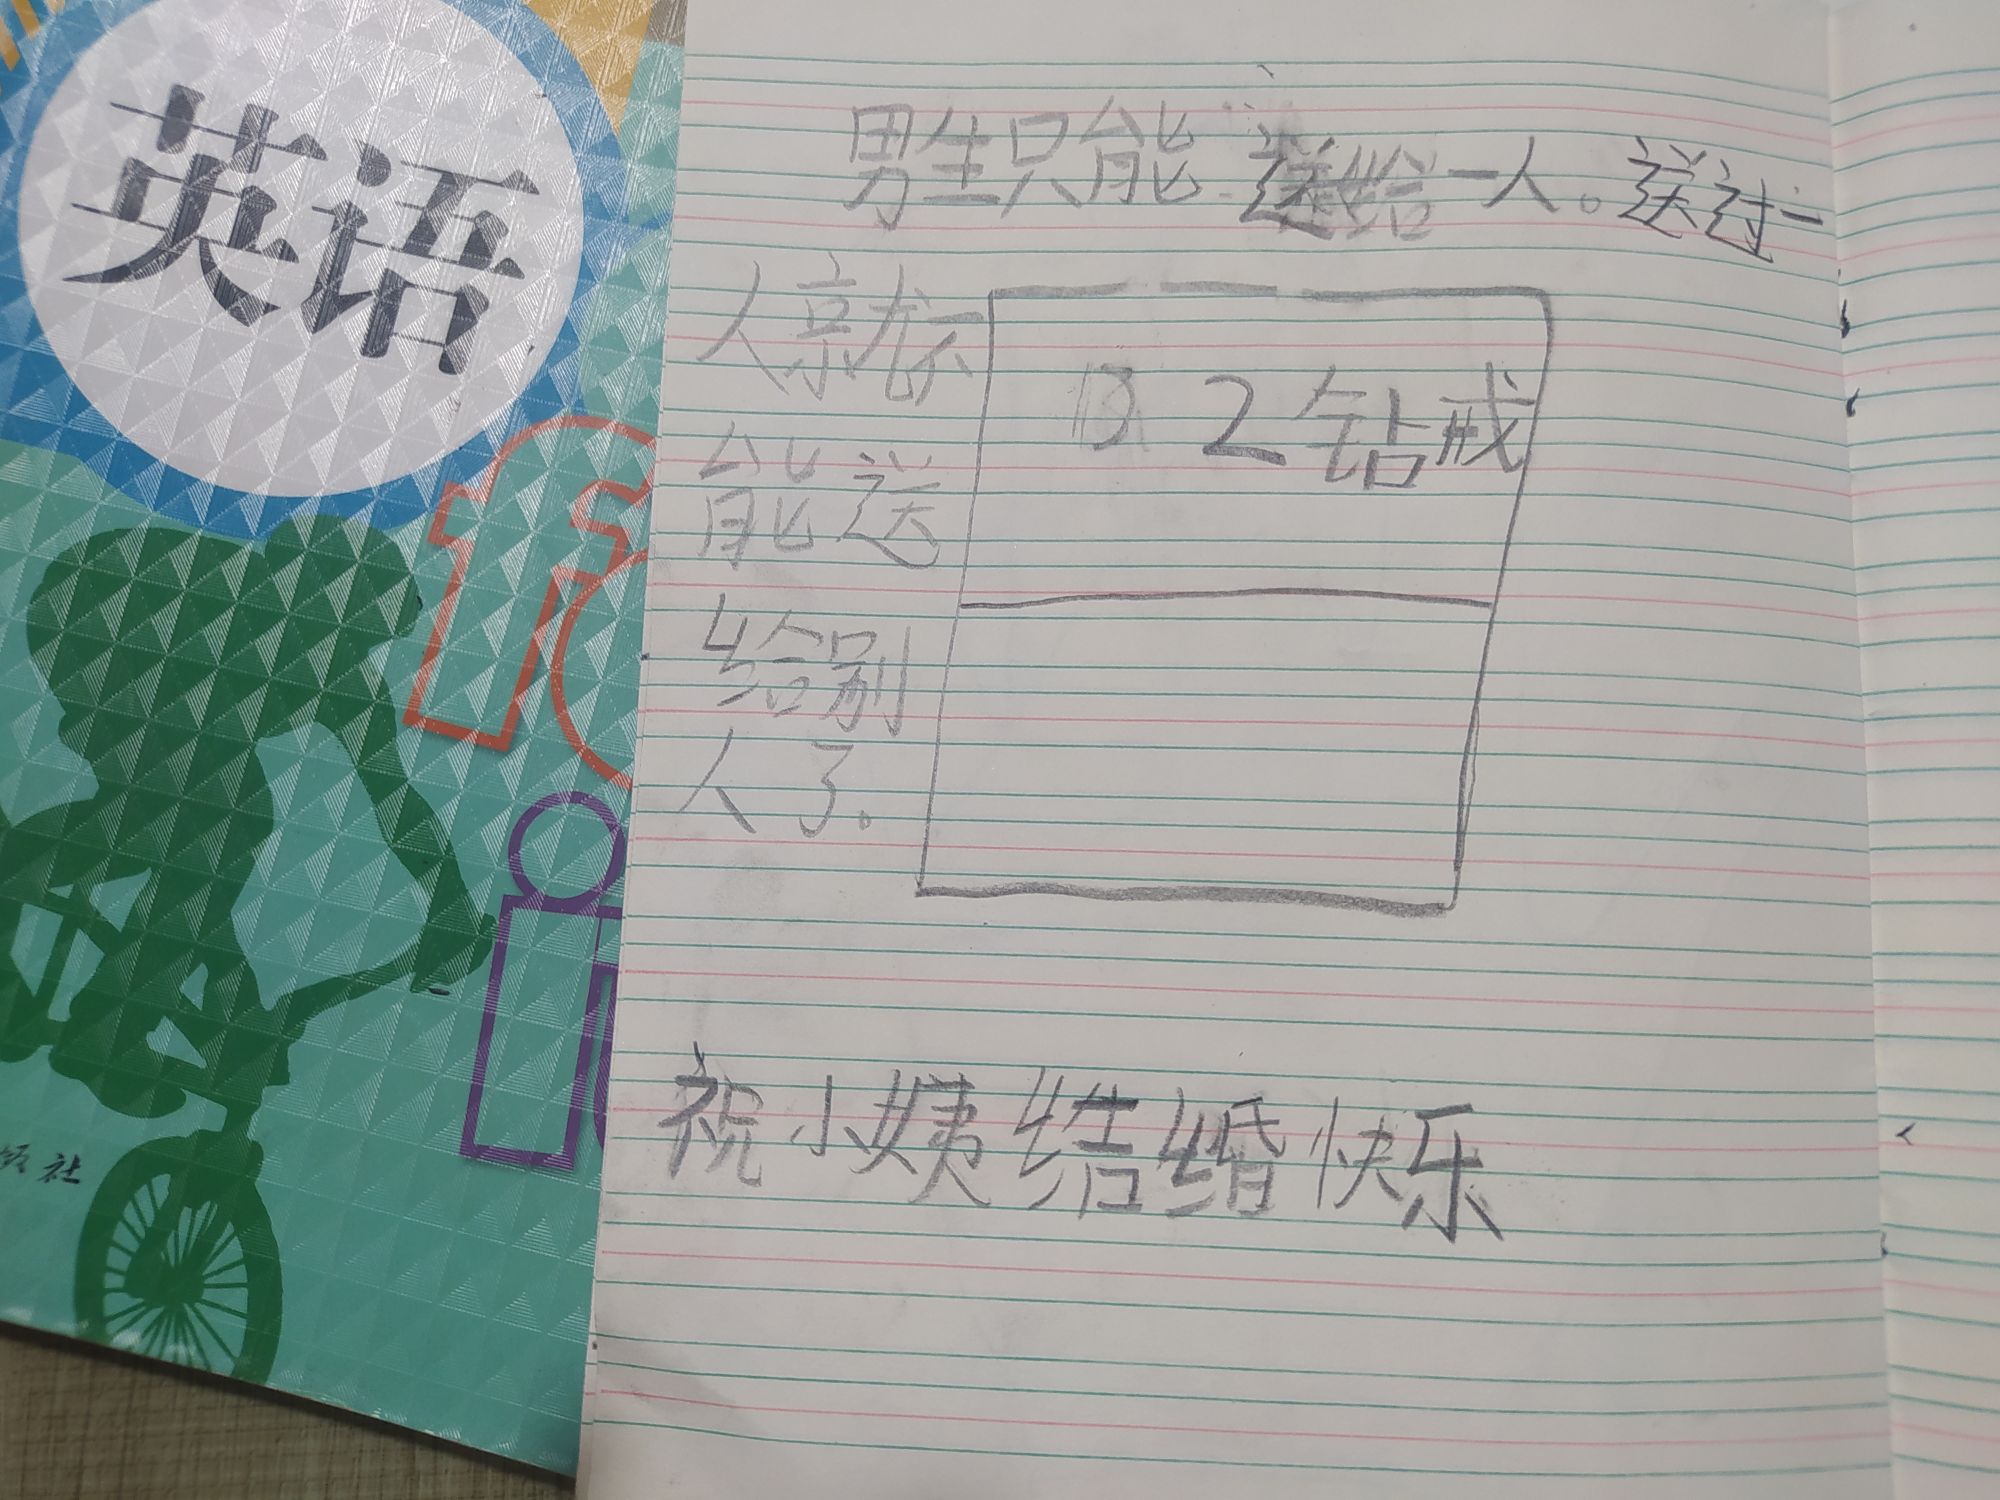 英语
fo
i
版社
男生只能送给一人。送过一
人就不
能送
给别
人了。
2钻戒
祝小姨结婚快乐